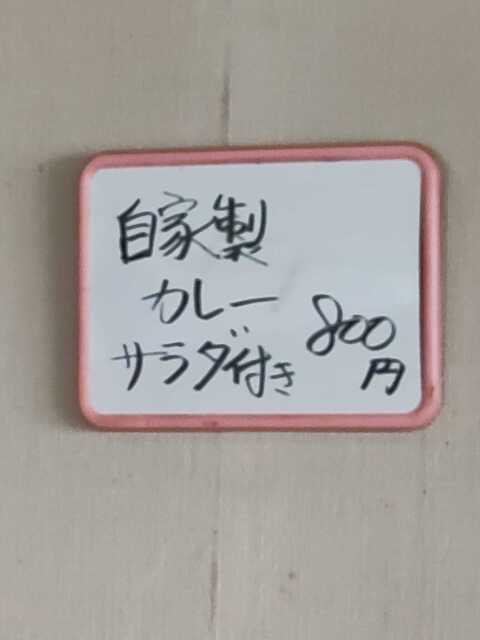 自家製
カレー
サラダ付き
800
円